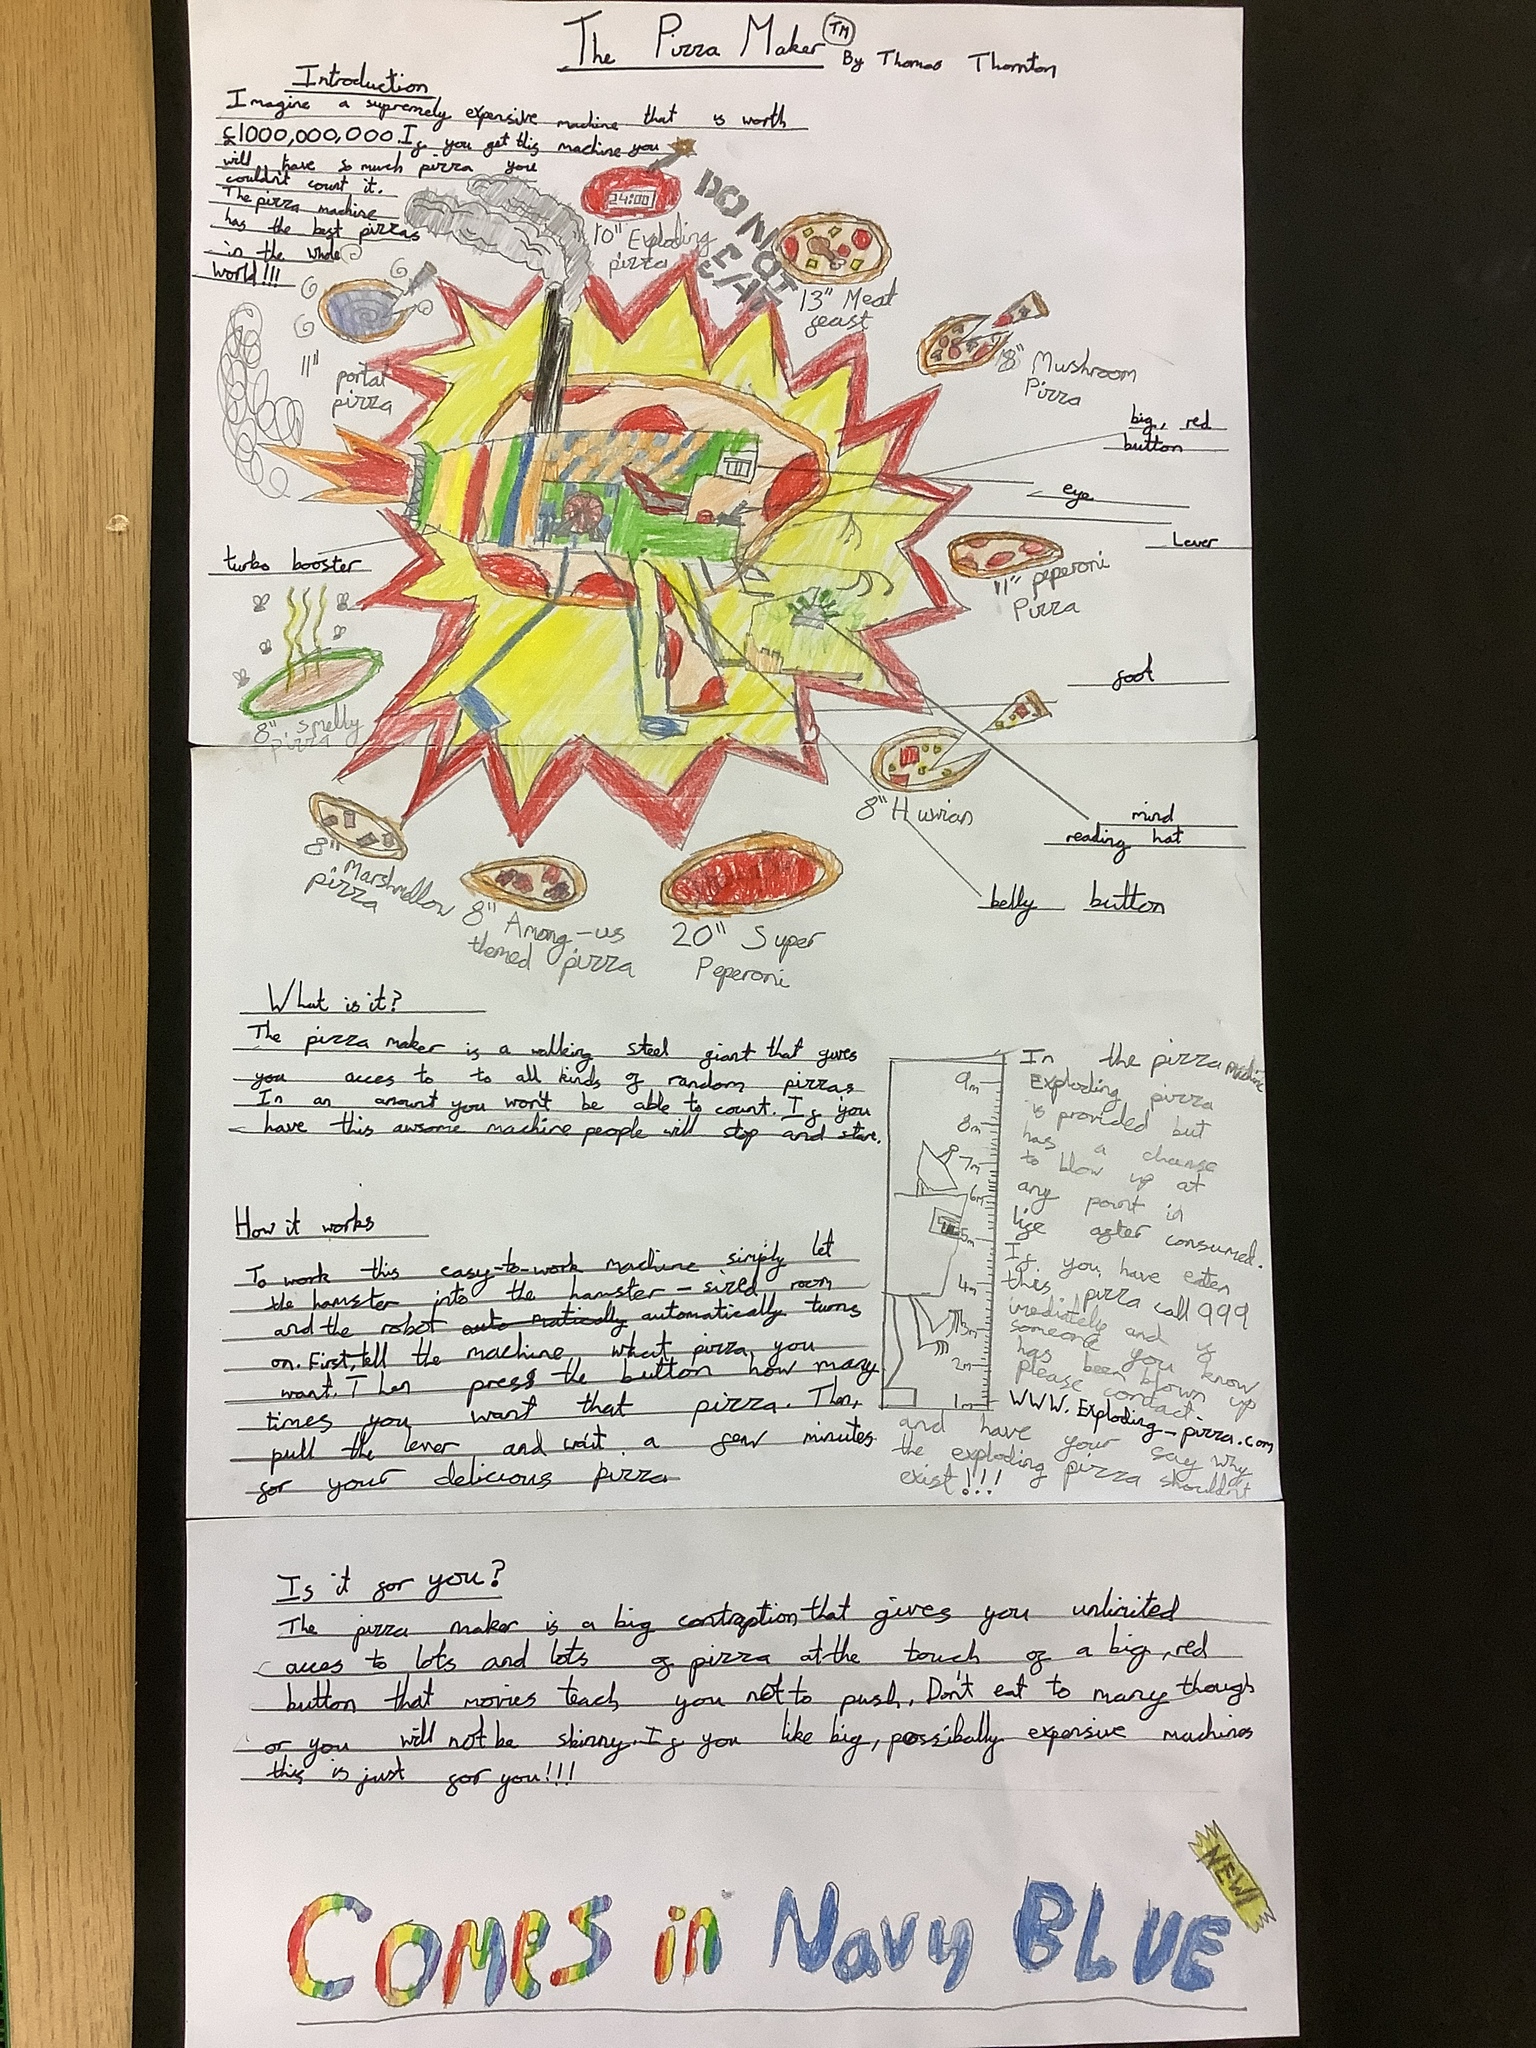 The Pizza Maker TM
By Thomas Thornton
Introduction
Imagine a supremely expensive machine that is worth
£1000,000,000. If you get this machine you
will have so much pizza you
couldn't count it.
The pizza machine
has the best pizzas
in the whole
world!!!
24:00
10" Exploding
pizza
DO NOT
EAT
13" Meat
feast
8" Mushroom
Pizza
11"
portal
pizza
big, red
button
eye
Lever
11" peperoni
Pizza
turbo booster
8" smelly
pizza
foot
8" Hawian
mind
reading hat
belly button
8"
Marshmellow
pizza
8" Among-us
themed pizza
20" Super
Peperoni
What is it?
The pizza maker is a walking steel giant that gives
you acces to to all kinds of random pizzas
In an amount you won't be able to count. If you
have this awsome machine people will stop and stare.
How it works
To work this easy-to-work machine simply let
the hamster into the hamster-sized room
and the robot auto matically automatically turns
on. First, tell the machine what pizza you
want. Then press the button how many
times you want that pizza. Then,
pull the lever and wait a few minutes
for your delicious pizza
9m
8m
7m
6m
5m
4m
3m
2m
1m
In the pizza machine
Exploding pizza
is provided but
has a chanse
to blow up at
any point in
life after consumed.
If you have eaten
this pizza call 999
imediately and if
someone you know
has been blown up
please contact
WWW.Exploding-pizza.com
and have your say why
the exploding pizza shouldn't
exist!!!
Is it for you?
The pizza maker is a big contraption that gives you unlimited
acces to lots and lots of pizza at the touch of a big, red
button that movies teach you not to push. Don't eat to many though
or you will not be skinny. If you like big, possibally expensive machines
this is just for you!!!
NEW!
Comes in Navy BLUE